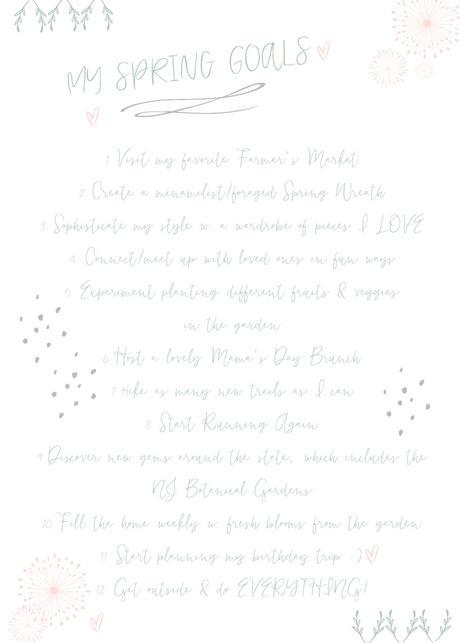 MY SPRING GOALS
1. Visit my favorite Farmer's Market
2. Create a menamilist/foraged Spring Wreath
3. Sophisticate my style w. a wardrobe of pieces I LOVE
4. Connect/meet up with loved ones in fun ways
5. Experiment planting different fruits & veggies
in the garden
6. Host a lovely Mama's Day Brunch
7. Hike as many new trails as I can
8. Start Running Again
9. Discover new gems around the state, which includes the
NJ Botanical Gardens
10. Fill the home weekly w. fresh blooms from the garden
11. Start planning my birthday trip :)
12. Get outside & do EVERYTHING!